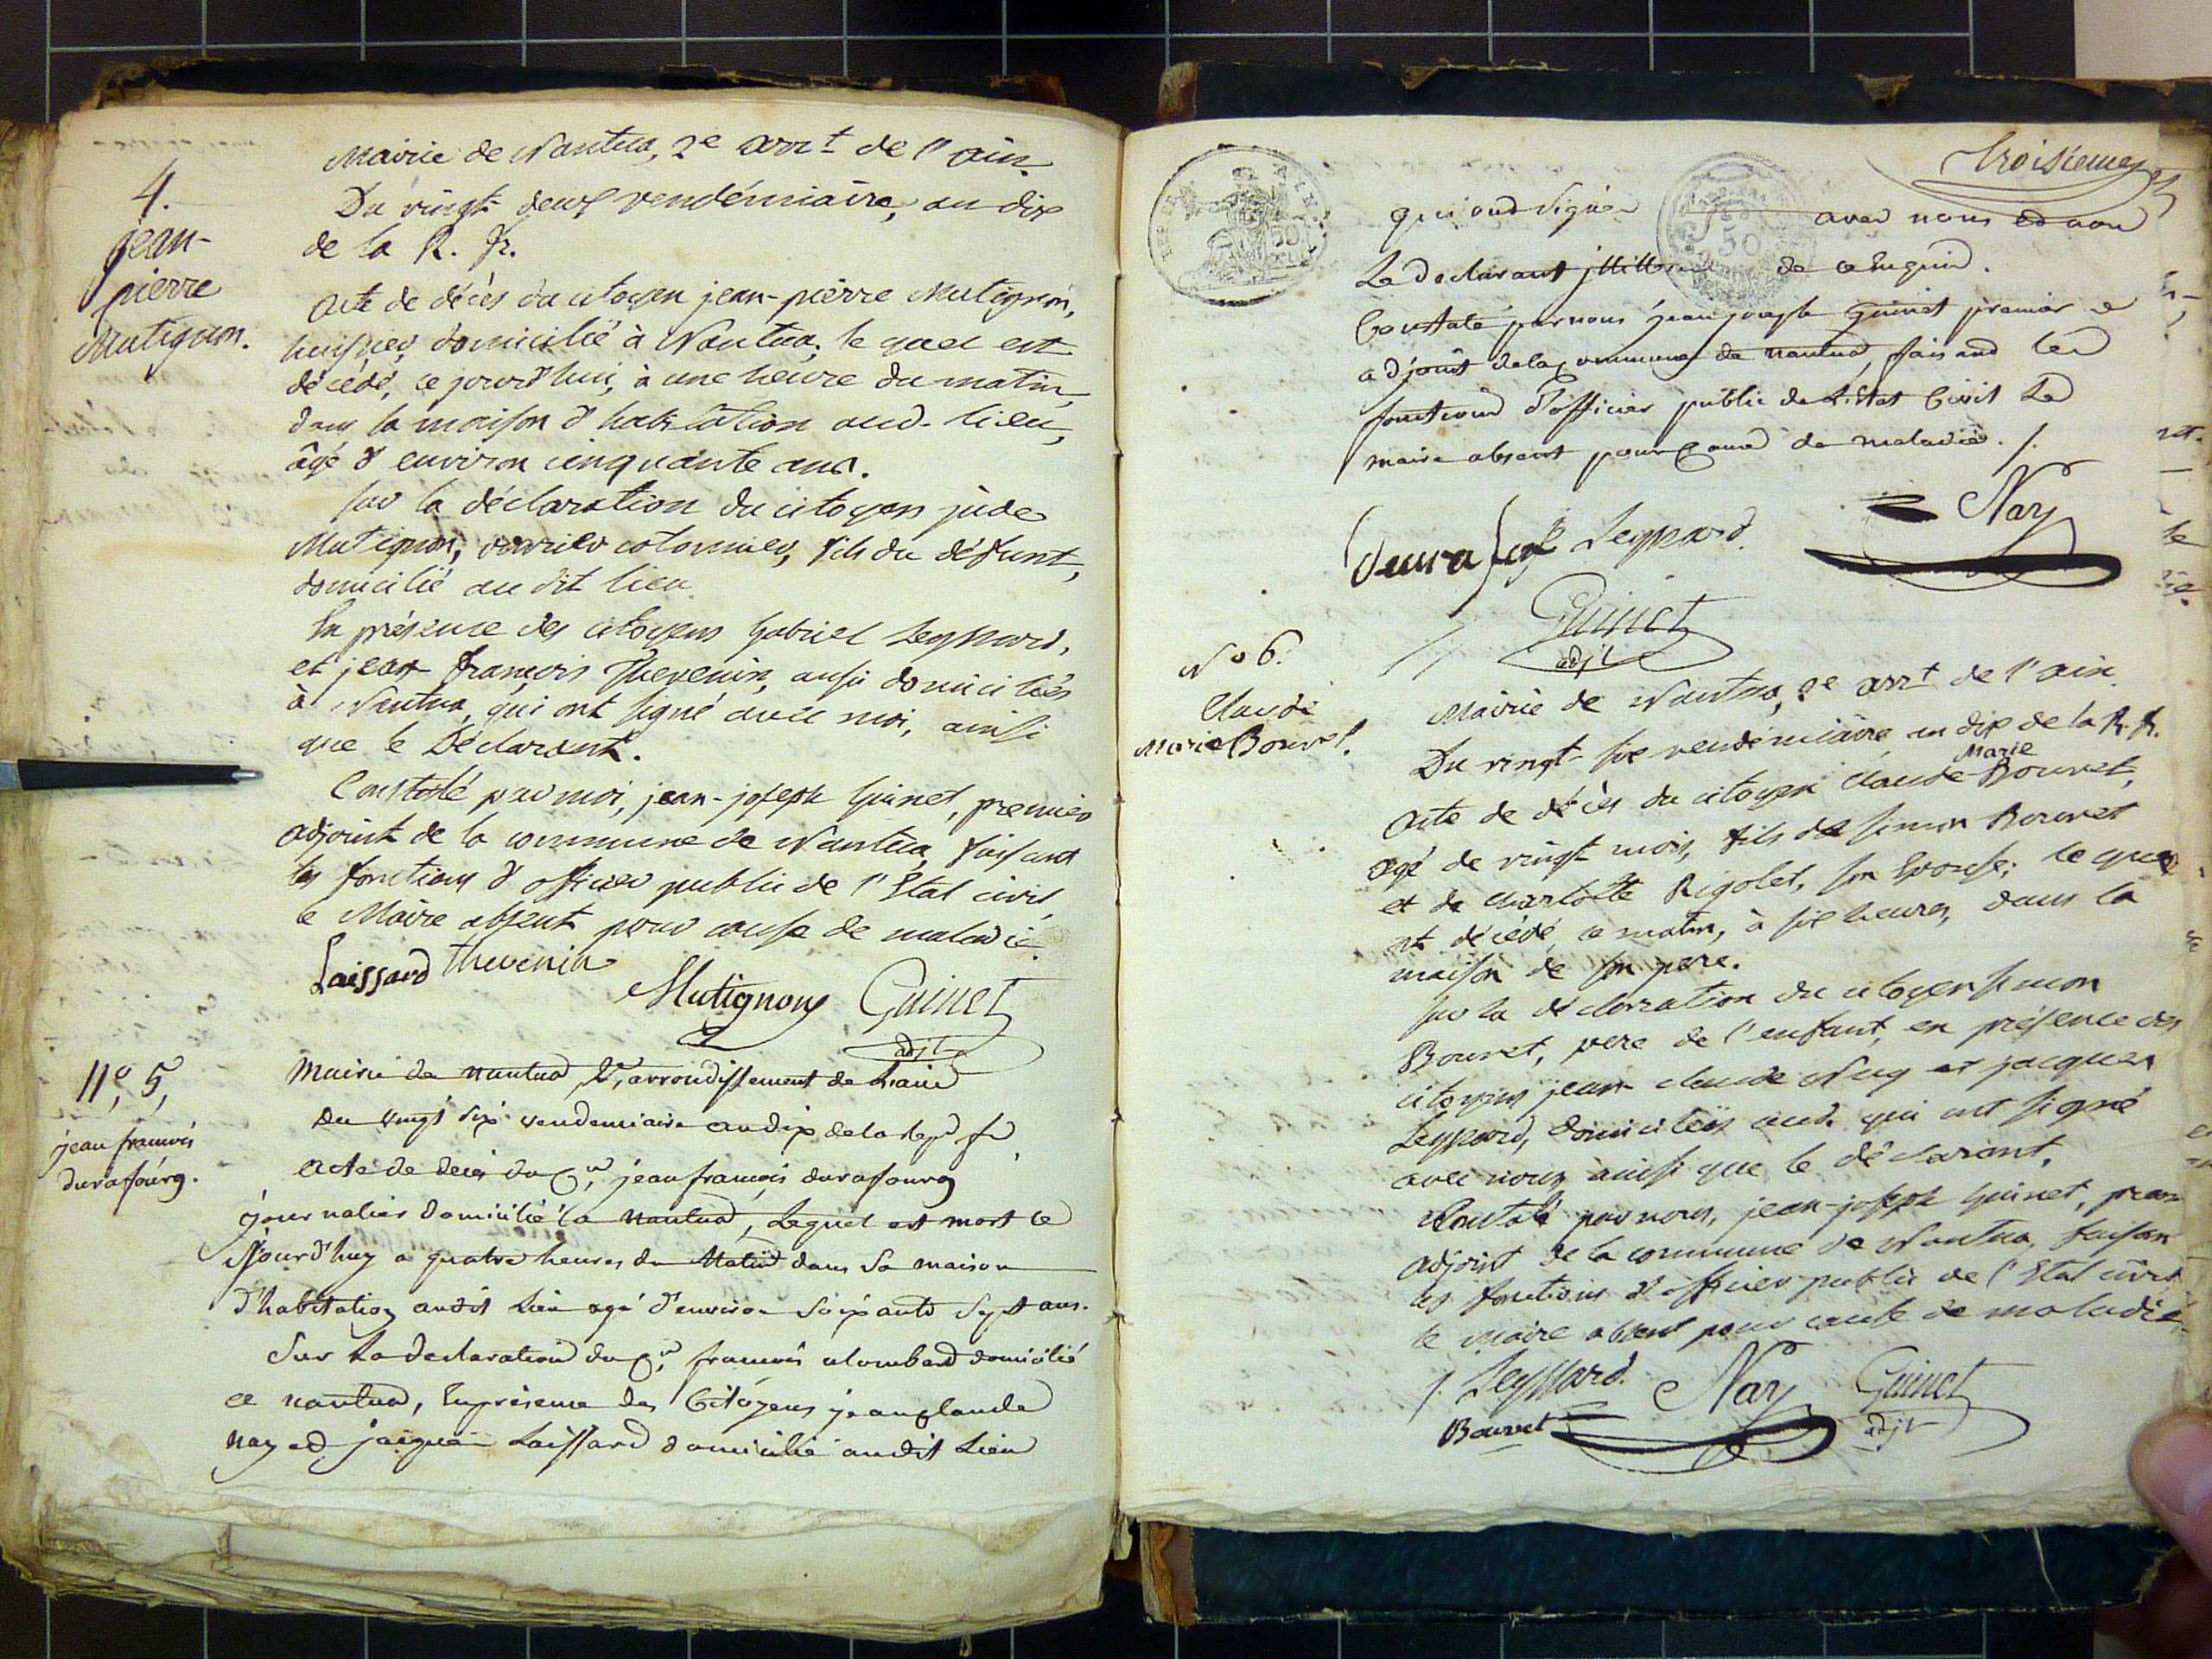 4.
jean-
pierre
Mutignon.
Mairie de Nantua, 2e arrt de l'ain.
Du vingt-deux vendémiaire, an dix
de la R. fr.
Acte de décès du citoyen jean-pierre Mutignon,
huissier, domicilié à Nantua, le quel est
décédé, ce jourd'hui, à une heure du matin,
dans la maison d'habitation aud. lieu,
âgé d'environ cinquante ans.
sur la déclaration du citoyen jude
Mutignon, ouvrier cotonnier, fils du défunt,
domicilié au dit lieu.
En présence des citoyens Gabriel Leyssard,
et jean françois Thevenin, aussi domiciliés
à Nantua, qui ont signé avec moi, ainsi
que le Déclarant.
Constaté par moi, jean-joseph Guinet, premier
adjoint de la commune de Nantua, faisant
les fonctions d'officier public de l'Etat civil,
le Maire absent pour cause de maladie
Laissard thevenin
Mutignon Guinet
adjt
No, 5,
jean francois
durafourg.
Mairie de nantua, 2e, arrondissement de Lain
Du vingt six vendemiaire an dix de la rep fr,
acte de deces du Cn, jean francois durafourg
journalier domicilié a nantua, Lequel est mort ce
jourd'huy a quatre heures du Matin dans Sa maison
d'habitation audit Lieu agé d'environ Soixante Sept ans.
Sur La declaration du Cn, francois alombard domicilié
a nantua, En présence des Citoyens jean claude
nay et jacques Laissard domicilié audit Lieu
troisieme
qui ont Signé avec nous et non
Le declarant de ce Enquis.
Constaté par nous jean joseph guinet premier
adjoint de la Commune de nantua, faisant les
fonctions d'officier public de L'Etat Civil Le
maire absent pour Cause de maladie. /.
Leyssard Nay
Guinet
adjt
No 6.
Claude
Marie Bouvet.
Mairie de Nantua, 2e arrt de l'ain.
Du vingt-six vendémiaire an dix de la R. fr.
Marie
Acte de décès du citoyen claude Bouvet,
agé de vingt mois, fils de simon Bouvet
et de charlotte Rigolet, son Epouse; le quel
est décédé ce matin, à six heures, dans la
maison de son pere.
sur la déclaration du citoyen simon
Bouvet, pere de l'enfant, en présence des
citoyens jean claude Nay et jacques
Leyssard, domiciliés aud. qui ont signé
avec nous ainsi que le déclarant.
Constaté par nous, jean-joseph Guinet,
adjoint de la commune de Nantua, faisan
les fonctions d'officier public de l'Etat civil
le Maire absent pour cause de maladie.
J. Leyssard. Nay Guinet
Bouvet adjt